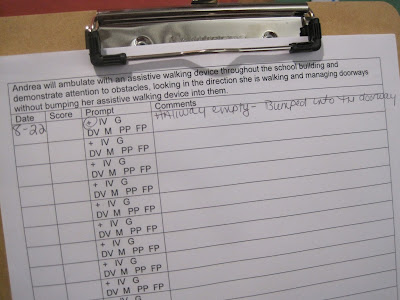 Andrea will ambulate with an assistive walking device throughout the school building and
demonstrate attention to obstacles, looking in the direction she is walking and managing doorways
without bumping her assistive walking device into them.
Date Score Prompt Comments
8-22 + IV G Hallway empty - Bumped into the doorway
DV M PP FP
+ IV G
DV M PP FP
+ IV G
DV M PP FP
+ IV G
DV M PP FP
+ IV G
DV M PP FP
+ IV G
DV M PP FP
+ IV G
DV M PP FP
+ IV G
DV M PP FP
+ IV G